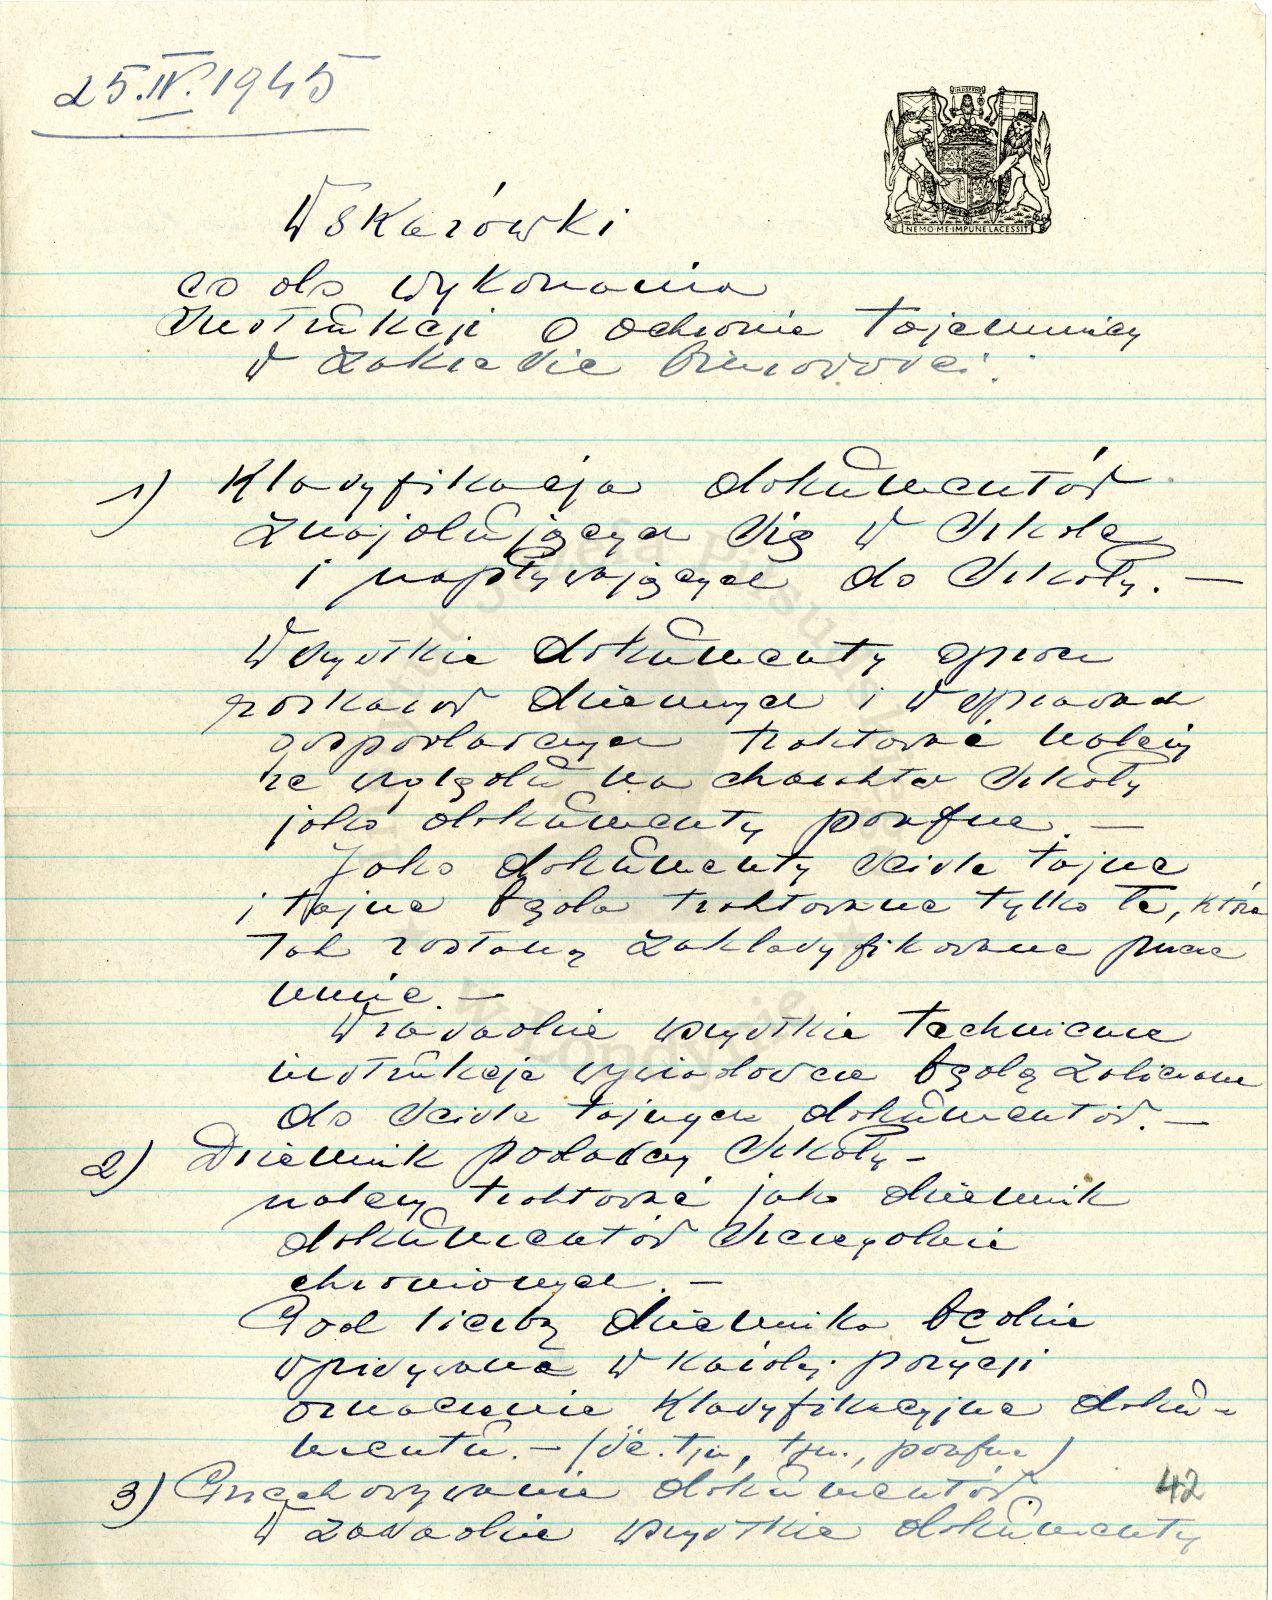 25.IV.1945
NEMO·ME·IMPUNE·LACESSIT
Wskazówki
co do wykonania
Instrukcji o ochronie tajemnicy
w zakresie biurowości.
1) Klasyfikacja dokumentów
znajdujących się w Szkole
i napływających do Szkoły. —
Wszystkie dokumenty oprócz
rozkazów dziennych i w sprawach
gospodarczych traktować należy
ze względu na charakter Szkoły
jako dokumenty poufne. —
Jako dokumenty ściśle tajne
i tajne będą traktowane tylko te, które
tak zostaną zaklasyfikowane przeze
mnie. —
W zasadzie wszystkie techniczne
instrukcje wywiadowcze będą zaliczane
do ściśle tajnych dokumentów. —
2) Dziennik podawczy Szkoły —
należy traktować jako dziennik
dokumentów szczególnie
chronionych. —
Pod liczbą dziennika będzie
wpisywane w każdej pozycji
oznaczenie klasyfikacyjne doku-
mentu. — (śc. tjn., tjn., poufne)
3) Przechowywanie dokumentów
W zasadzie wszystkie dokumenty
42
Instytut Józefa Piłsudskiego
w Londynie